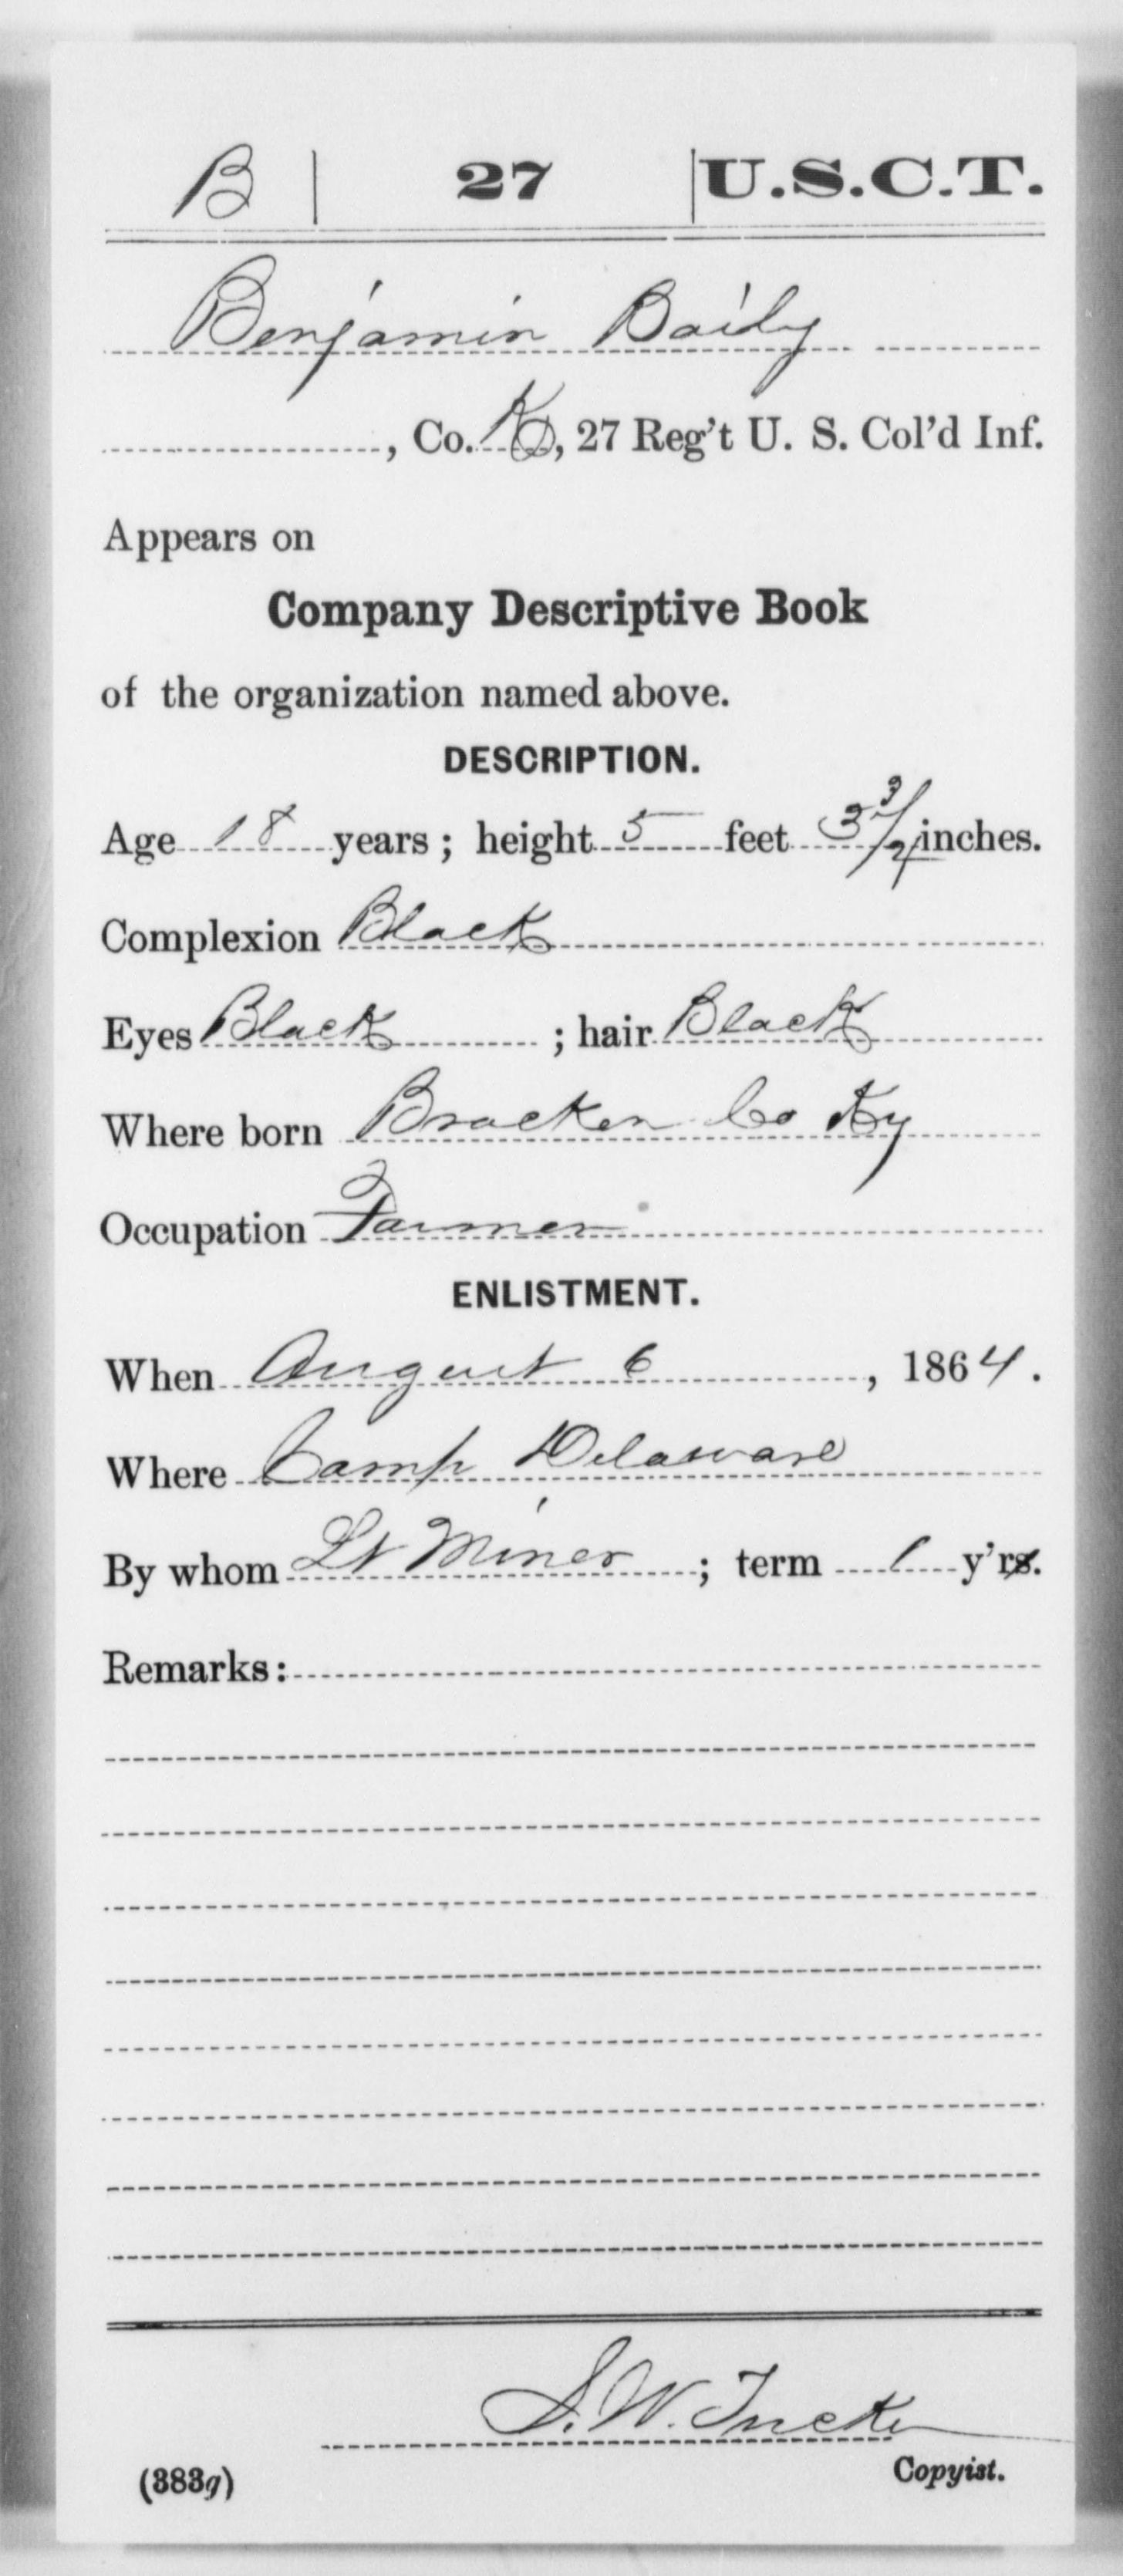 B | 27 | U.S.C.T.
Benjamin Baily
, Co. K, 27 Reg't U. S. Col'd Inf.
Appears on
Company Descriptive Book
of the organization named above.
DESCRIPTION.
Age 18 years; height 5 feet 3 inches.
Complexion Black
Eyes Black ; hair Black
Where born Bracken Co Ky
Occupation Farmer
ENLISTMENT.
When August 6, 1864.
Where Camp Delaware
By whom Lt Miner; term 1 y'rs.
Remarks:
S. W. Tucker
Copyist.
(383g)